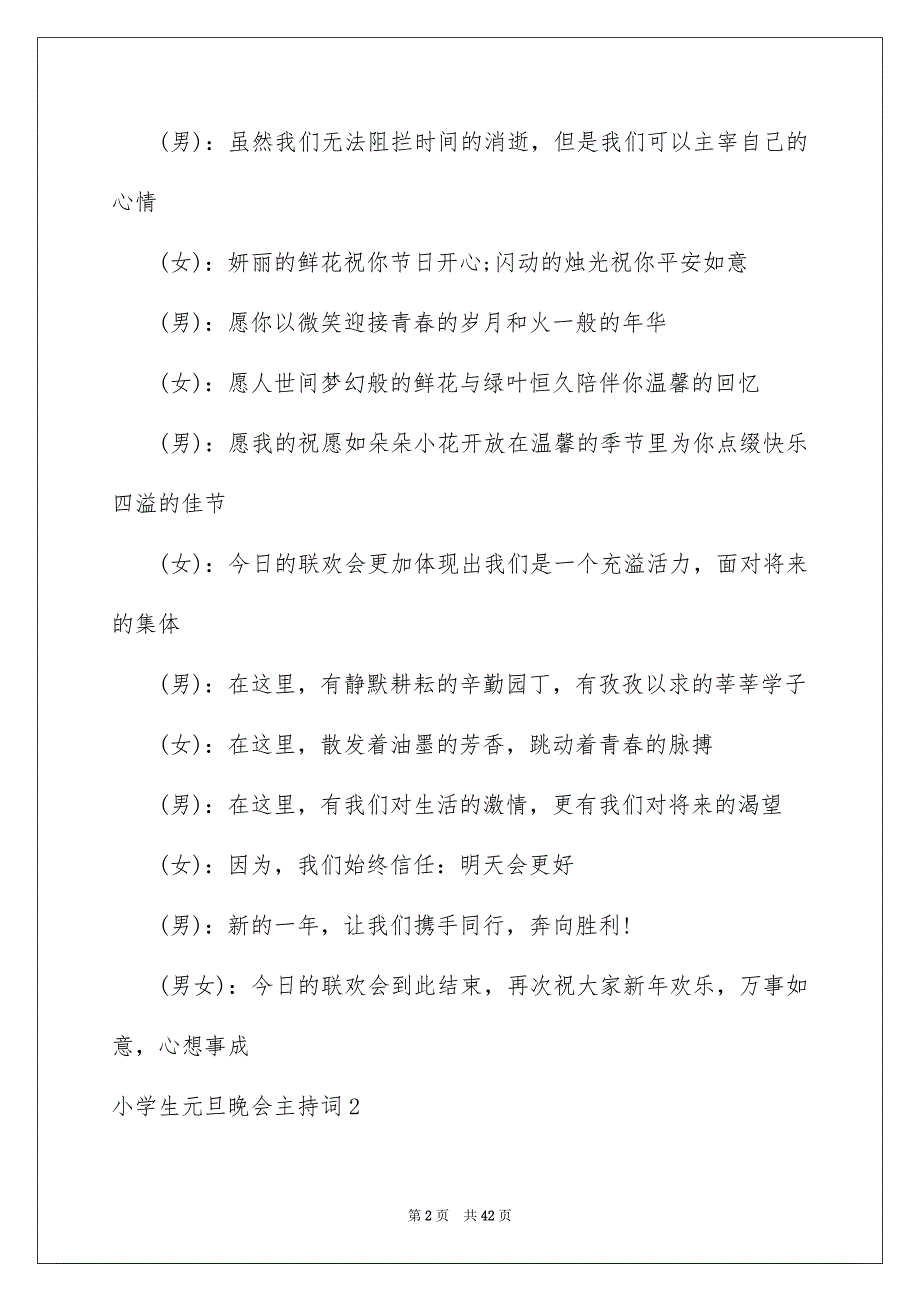 (男)：虽然我们无法阻拦时间的消逝，但是我们可以主宰自己的
心情
(女)：妍丽的鲜花祝你节日开心;闪动的烛光祝你平安如意
(男)：愿你以微笑迎接青春的岁月和火一般的年华
(女)：愿人世间梦幻般的鲜花与绿叶恒久陪伴你温馨的回忆
(男)：愿我的祝愿如朵朵小花开放在温馨的季节里为你点缀快乐
四溢的佳节
(女)：今日的联欢会更加体现出我们是一个充溢活力，面对将来
的集体
(男)：在这里，有静默耕耘的辛勤园丁，有孜孜以求的莘莘学子
(女)：在这里，散发着油墨的芳香，跳动着青春的脉搏
(男)：在这里，有我们对生活的激情，更有我们对将来的渴望
(女)：因为，我们始终信任：明天会更好
(男)：新的一年，让我们携手同行，奔向胜利!
(男女)：今日的联欢会到此结束，再次祝大家新年欢乐，万事如
意，心想事成
小学生元旦晚会主持词2
第 2 页 共 42 页